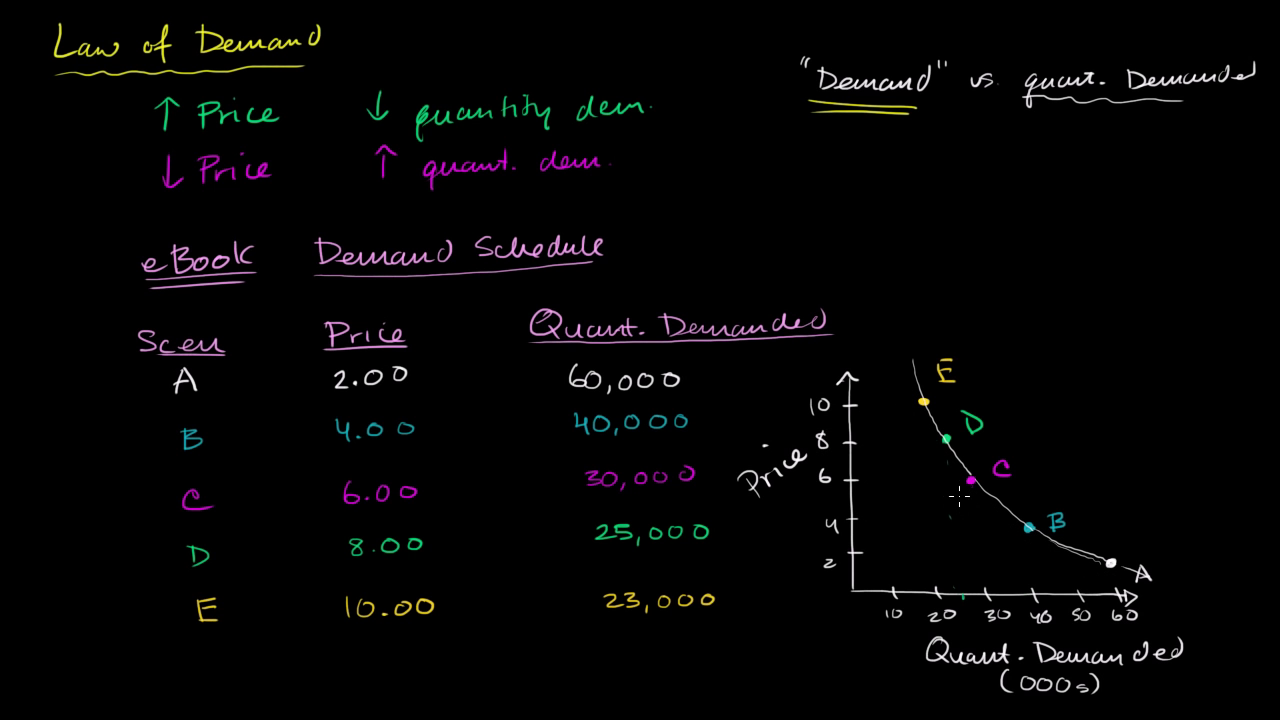 Law of Demand
"Demand" vs. quant. Demanded
↑ Price ↓ quantity dem.
↓ Price ↑ quant. dem.
eBook Demand Schedule
Scen Price Quant. Demanded
A 2.00 60,000
B 4.00 40,000
C 6.00 30,000
D 8.00 25,000
E 10.00 23,000
Price
10
8
6
4
2
E
D
C
B
A
10 20 30 40 50 60
Quant. Demanded
(000s)